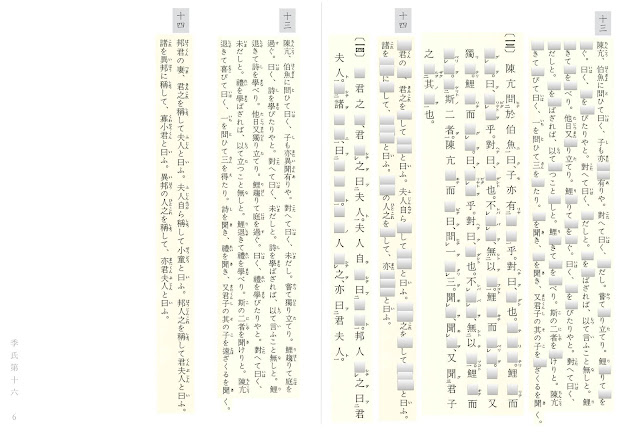 十三
陳亢、伯魚に問ひて曰く、子も亦有りや。對へて曰く、だし。嘗て獨り立てり。鯉りてを
過ぐ。曰く、をびたりやと。對へて曰く、だしと。をばざれば、以て言ふこと無しと。鯉
きてをべり。他日又獨り立てり。鯉りてをぐ。曰く、をびたりやと。對へて曰く、
だしと。をばざれば、以て立つことしと。鯉きてをべり。斯の二者をけりと。陳亢
きてびて曰く、一を問ひて三をたり。を聞き、を聞き、又君子の其の子をざくるを聞く。
【一三】 陳亢問於伯魚曰、子亦有乎。對曰、也。鯉而
曰、乎。對曰、也。不、無以。鯉而又
獨。鯉而曰、乎。對曰、也。不、無以。鯉而
斯二者。陳亢而曰、問一三。聞又聞君子
之其也。
十四
君の、君之をしてと曰ふ。夫人自らしてと曰ふ。之をしてと曰ふ。
諸をにして、と曰ふ。の人之をして、亦と曰ふ。
【一四】 君之君之曰夫人。夫人自曰。邦人之曰
夫人。諸、曰。人之亦曰君夫人。
十三
陳亢、伯魚に問ひて曰く、子も亦異聞有りや。對へて曰く、未だし。嘗て獨り立てり。鯉趨りて庭を
過ぐ。曰く、詩を學びたりやと。對へて曰く、未だしと。詩を學ばざれば、以て言ふこと無しと。鯉
退きて詩を學べり。他日又獨り立てり。鯉趨りて庭を過ぐ。曰く、禮を學びたりやと。對へて曰く、
未だしと。禮を學ばざれば、以て立つこと無しと。鯉退きて禮を學べり。斯の二者を聞けりと。陳亢
退きて喜びて曰く、一を問ひて三を得たり。詩を聞き、禮を聞き、又君子の其の子を遠ざくるを聞く。
十四
邦君の妻、君之を稱して夫人と曰ふ。夫人自ら稱して小童と曰ふ。邦人之を稱して君夫人と曰ふ。
諸を異邦に稱して、寡小君と曰ふ。異邦の人之を稱して、亦君夫人と曰ふ。
季氏第十六 6